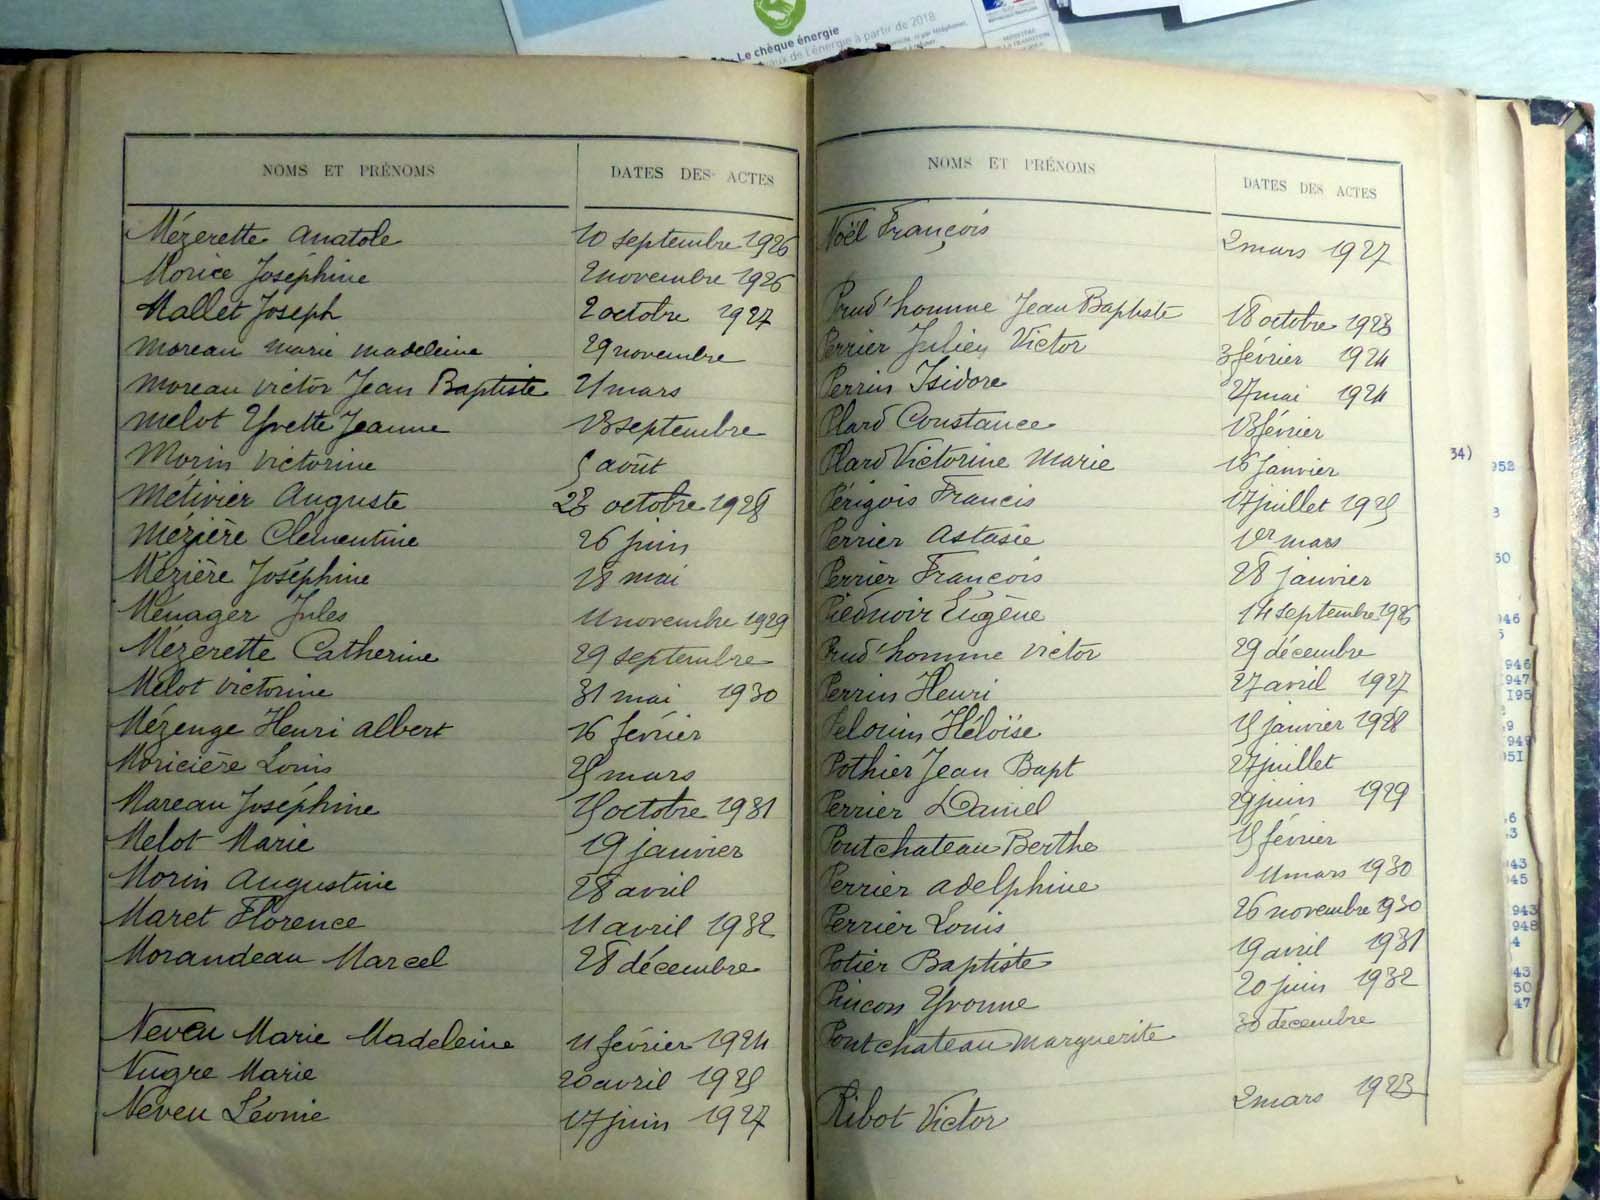 Le chèque énergie
à partir de 2018
NOMS ET PRÉNOMS DATES DES ACTES
Mézerette Anatole 10 septembre 1926
Morice Joséphine 2 novembre 1926
Mallet Joseph 2 octobre 1927
Moreau Marie Madeleine 29 novembre
Moreau Victor Jean Baptiste 21 mars
Melot Yvette Jeanne 18 septembre
Morin Victorine 5 août
Métivier Auguste 28 octobre 1928
Mézière Clémentine 26 juin
Mézière Joséphine 28 mai
Ménager Jules 11 novembre 1929
Mézerette Catherine 29 septembre
Melot Victorine 31 mai 1930
Mézenge Henri Albert 16 février
Moricière Louis 25 mars
Mareau Joséphine 15 octobre 1931
Melot Marie 19 janvier
Morin Augustine 28 avril
Maret Florence 11 avril 1932
Morandeau Marcel 28 décembre
Neveu Marie Madeleine 11 février 1924
Nugre Marie 20 avril 1925
Neveu Léonie 17 juin 1927
NOMS ET PRÉNOMS DATES DES ACTES
Noël François 2 mars 1927
Prud'homme Jean Baptiste 18 octobre 1923
Perrier Julien Victor 3 février 1924
Perrin Isidore 27 mai 1924
Plard Constance 18 février
Plard Victorine Marie 16 janvier
Périgois Francis 17 juillet 1925
Perrier Astasie 1er mars
Perrier François 28 janvier
Piednoir Eugène 14 septembre 1926
Prud'homme Victor 29 décembre
Perrin Henri 27 avril 1927
Pelouin Héloïse 15 janvier 1928
Pothier Jean Bapt 27 juillet
Perrier Daniel 29 juin 1929
Pontchateau Berthe 15 février
Perrier Adelphine 11 mars 1930
Perrier Louis 26 novembre 1930
Potier Baptiste 19 avril 1931
Pinçon Yvonne 20 juin 1932
Pontchateau Marguerite 30 décembre
Ribot Victor 2 mars 1923
34)
952
50
946
946
947
195
949
951
943
948
43
50
47